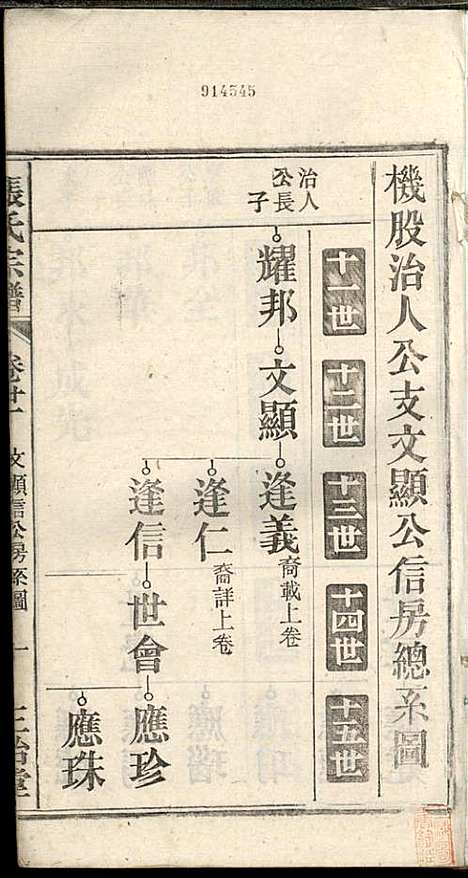 914545
機股治人公支文顯公信房總系圖
十一世
十二世
十三世
十四世
十五世
治人
公長
子
耀邦
文顯
逢義
裔載上卷
逢仁
裔詳上卷
逢信
世會
應珍
應珠
張氏宗譜
卷廿一
文顯信公房系圖
一